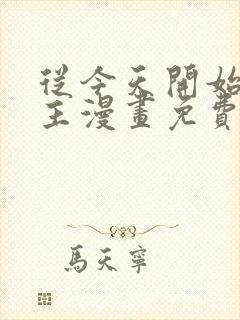 從今天開始
主漫畫免費
馬天寧